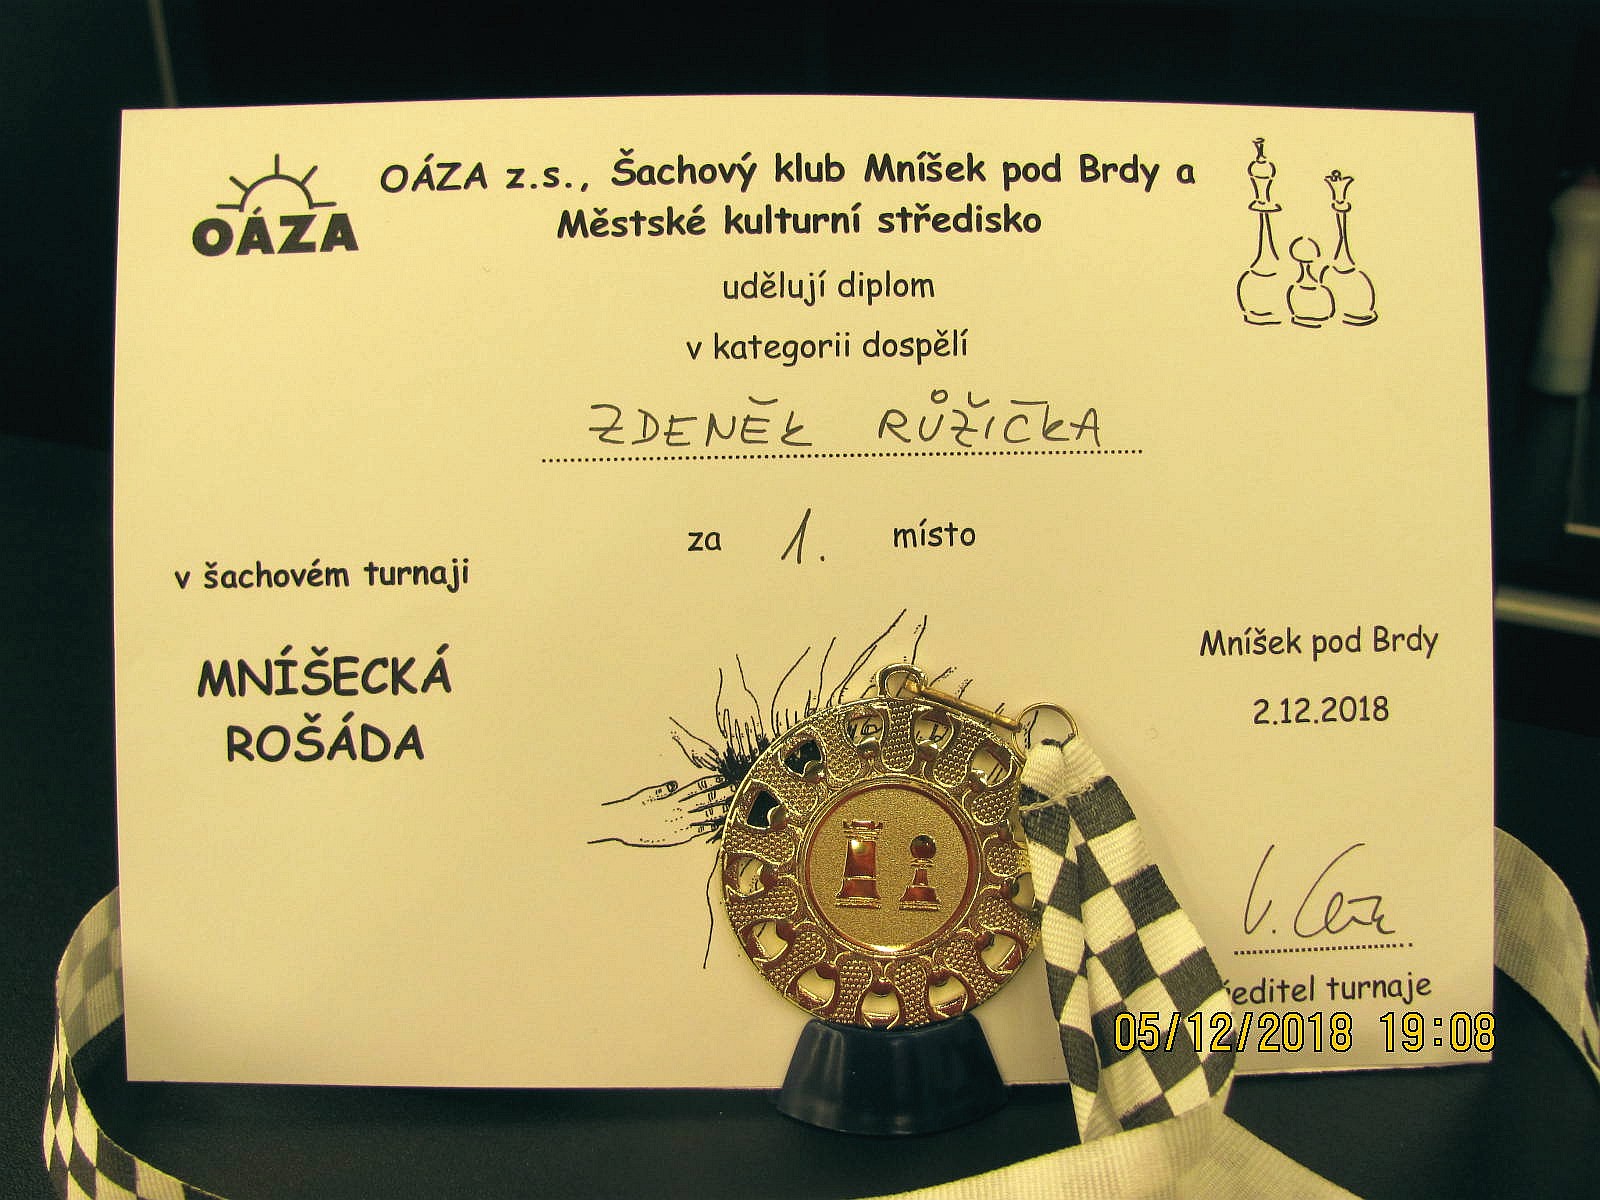 OÁZA
OÁZA z.s., Šachový klub Mníšek pod Brdy a
Městské kulturní středisko
udělují diplom
v kategorii dospělí
ZDENĚK RŮŽIČKA
za 1. místo
v šachovém turnaji
MNÍŠECKÁ
ROŠÁDA
Mníšek pod Brdy
2.12.2018
ředitel turnaje
05/12/2018 19:08